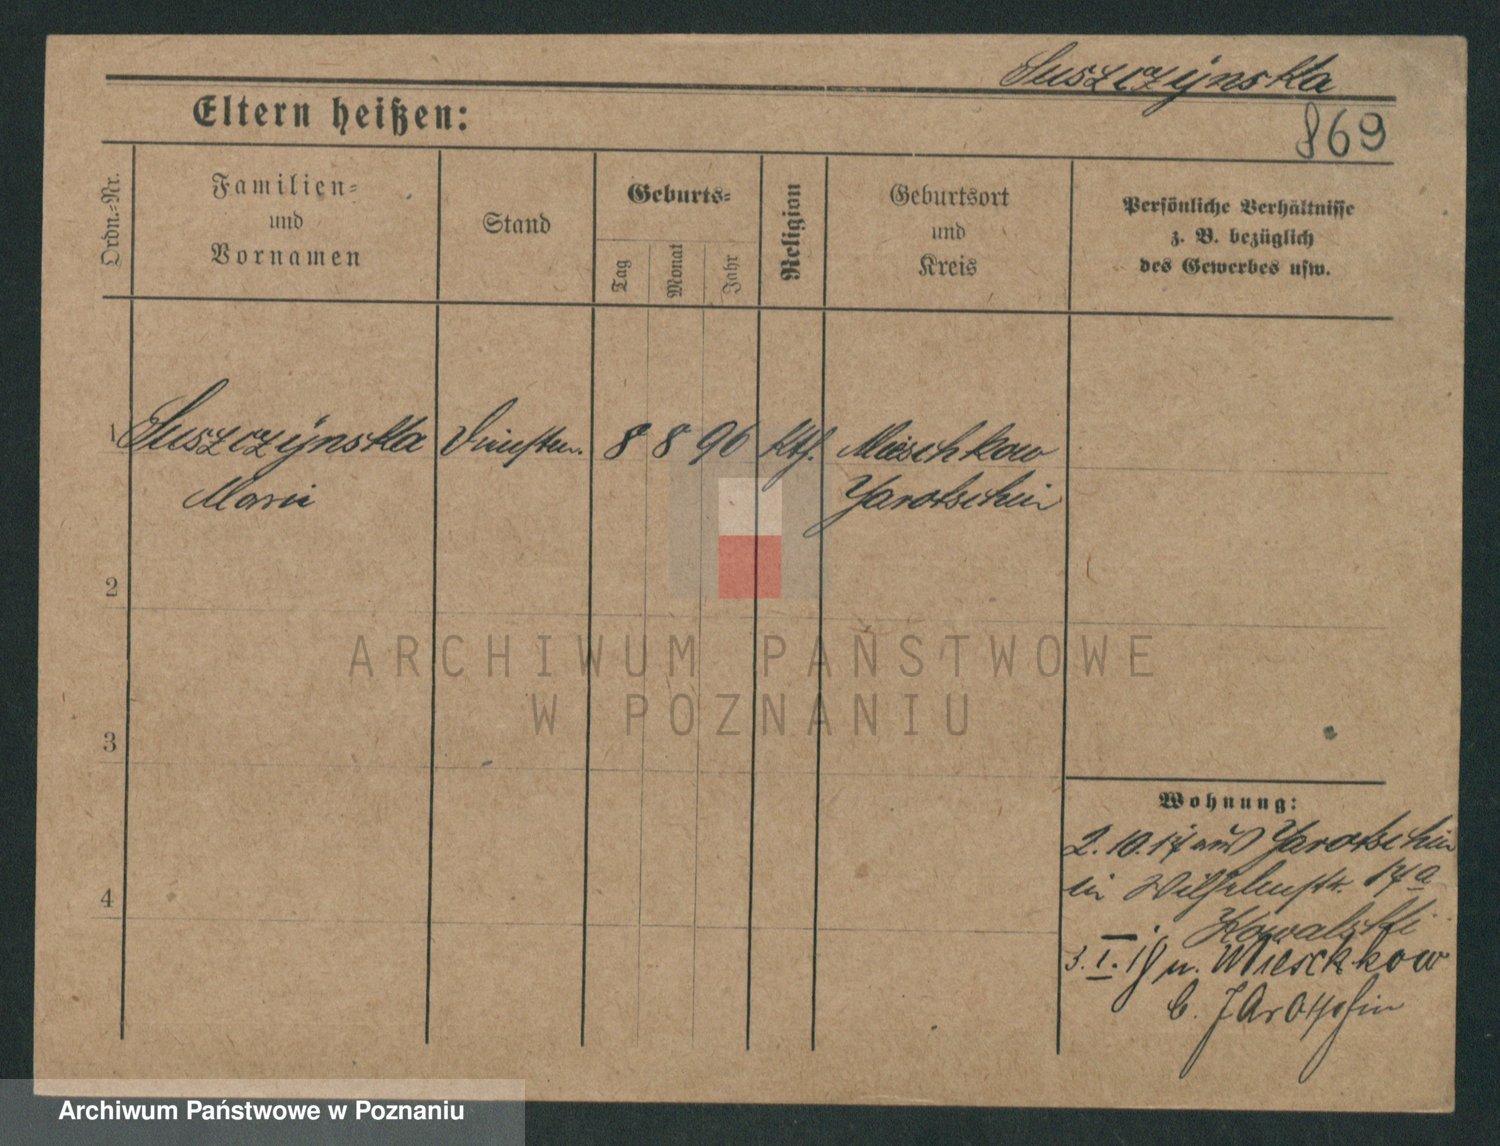 Suszczynska
Eltern heißen:
869
Ordn.=Nr.
Familien=
und
Vornamen
Stand
Geburts=
Tag
Monat
Jahr
Religion
Geburtsort
und
Kreis
Persönliche Verhältnisse
z. B. bezüglich
des Gewerbes usw.
1 Suszczynska 8 8 96 Kth. Mieschkow
Marie Jarotschin
2
3
4
Wohnung:
2.10.17 aus Jarotschin
in Wilhelmstr. 17a
Kowalski
3.I.18 n. Mieschkow
b. Jarotschin
ARCHIWUM PAŃSTWOWE
W POZNANIU
Archiwum Państwowe w Poznaniu